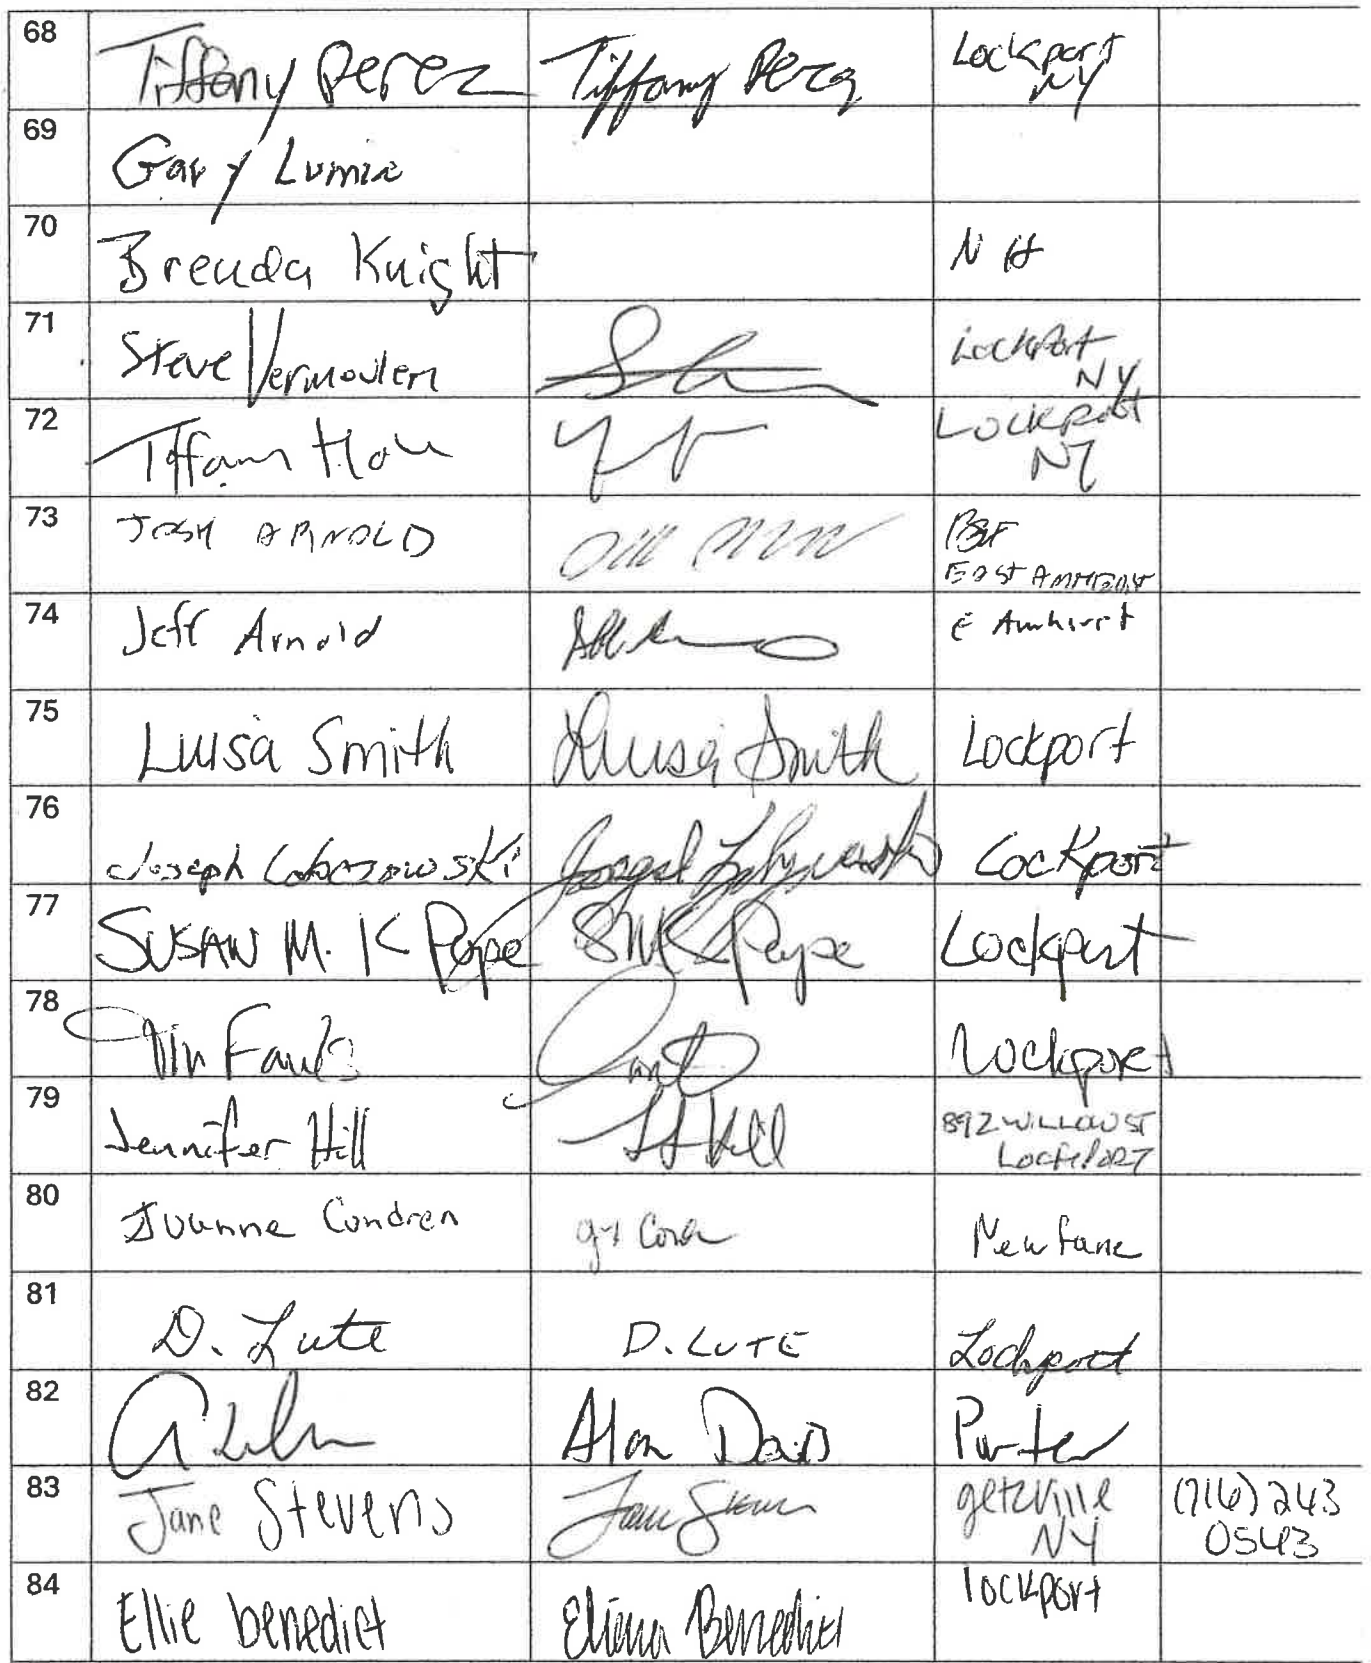 68 Tiffany Perez Tiffany Perez Lockport
NY
69 Gary
70 Brenda Knight N H
71 Steve Vermeulen Lockport
NY
72 Lockport
NY
73 JOSH ARNOLD
EAST AMHERST
74 Jeff Arnold E Amherst
75 Luisa Smith Luisa Smith Lockport
76 Joseph Joseph Lockport
77 SUSAN M. K Pope SMK Pope Lockport
78 Lockport
79 Jennifer Hill Hill 892 WILLOW ST
LOCKPORT
80 Condren Newfane
81 D. Lute D. LUTE Lockport
82 Alan Davis Porter
83 Jane Stevens Jane getzville (716) 243
NY 0543
84 Ellie benedict Benedict lockport